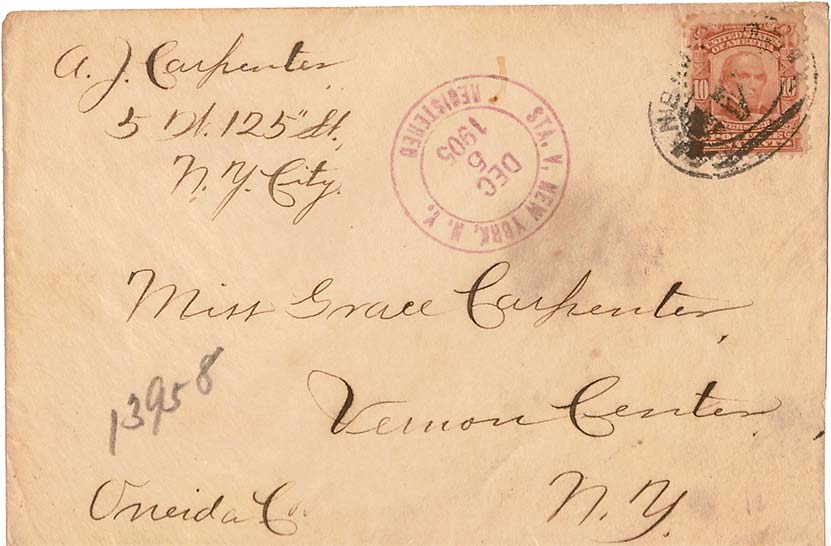 A. J. Carpenter
5 W. 125" St.,
N. Y. City.
REGISTERED
STA. V. NEW YORK, N. Y.
DEC
5
1905
UNITED STATES
OF AMERICA
10 10
Miss Grace Carpenter,
Vernon Center,
Oneida Co. N. Y.
13958